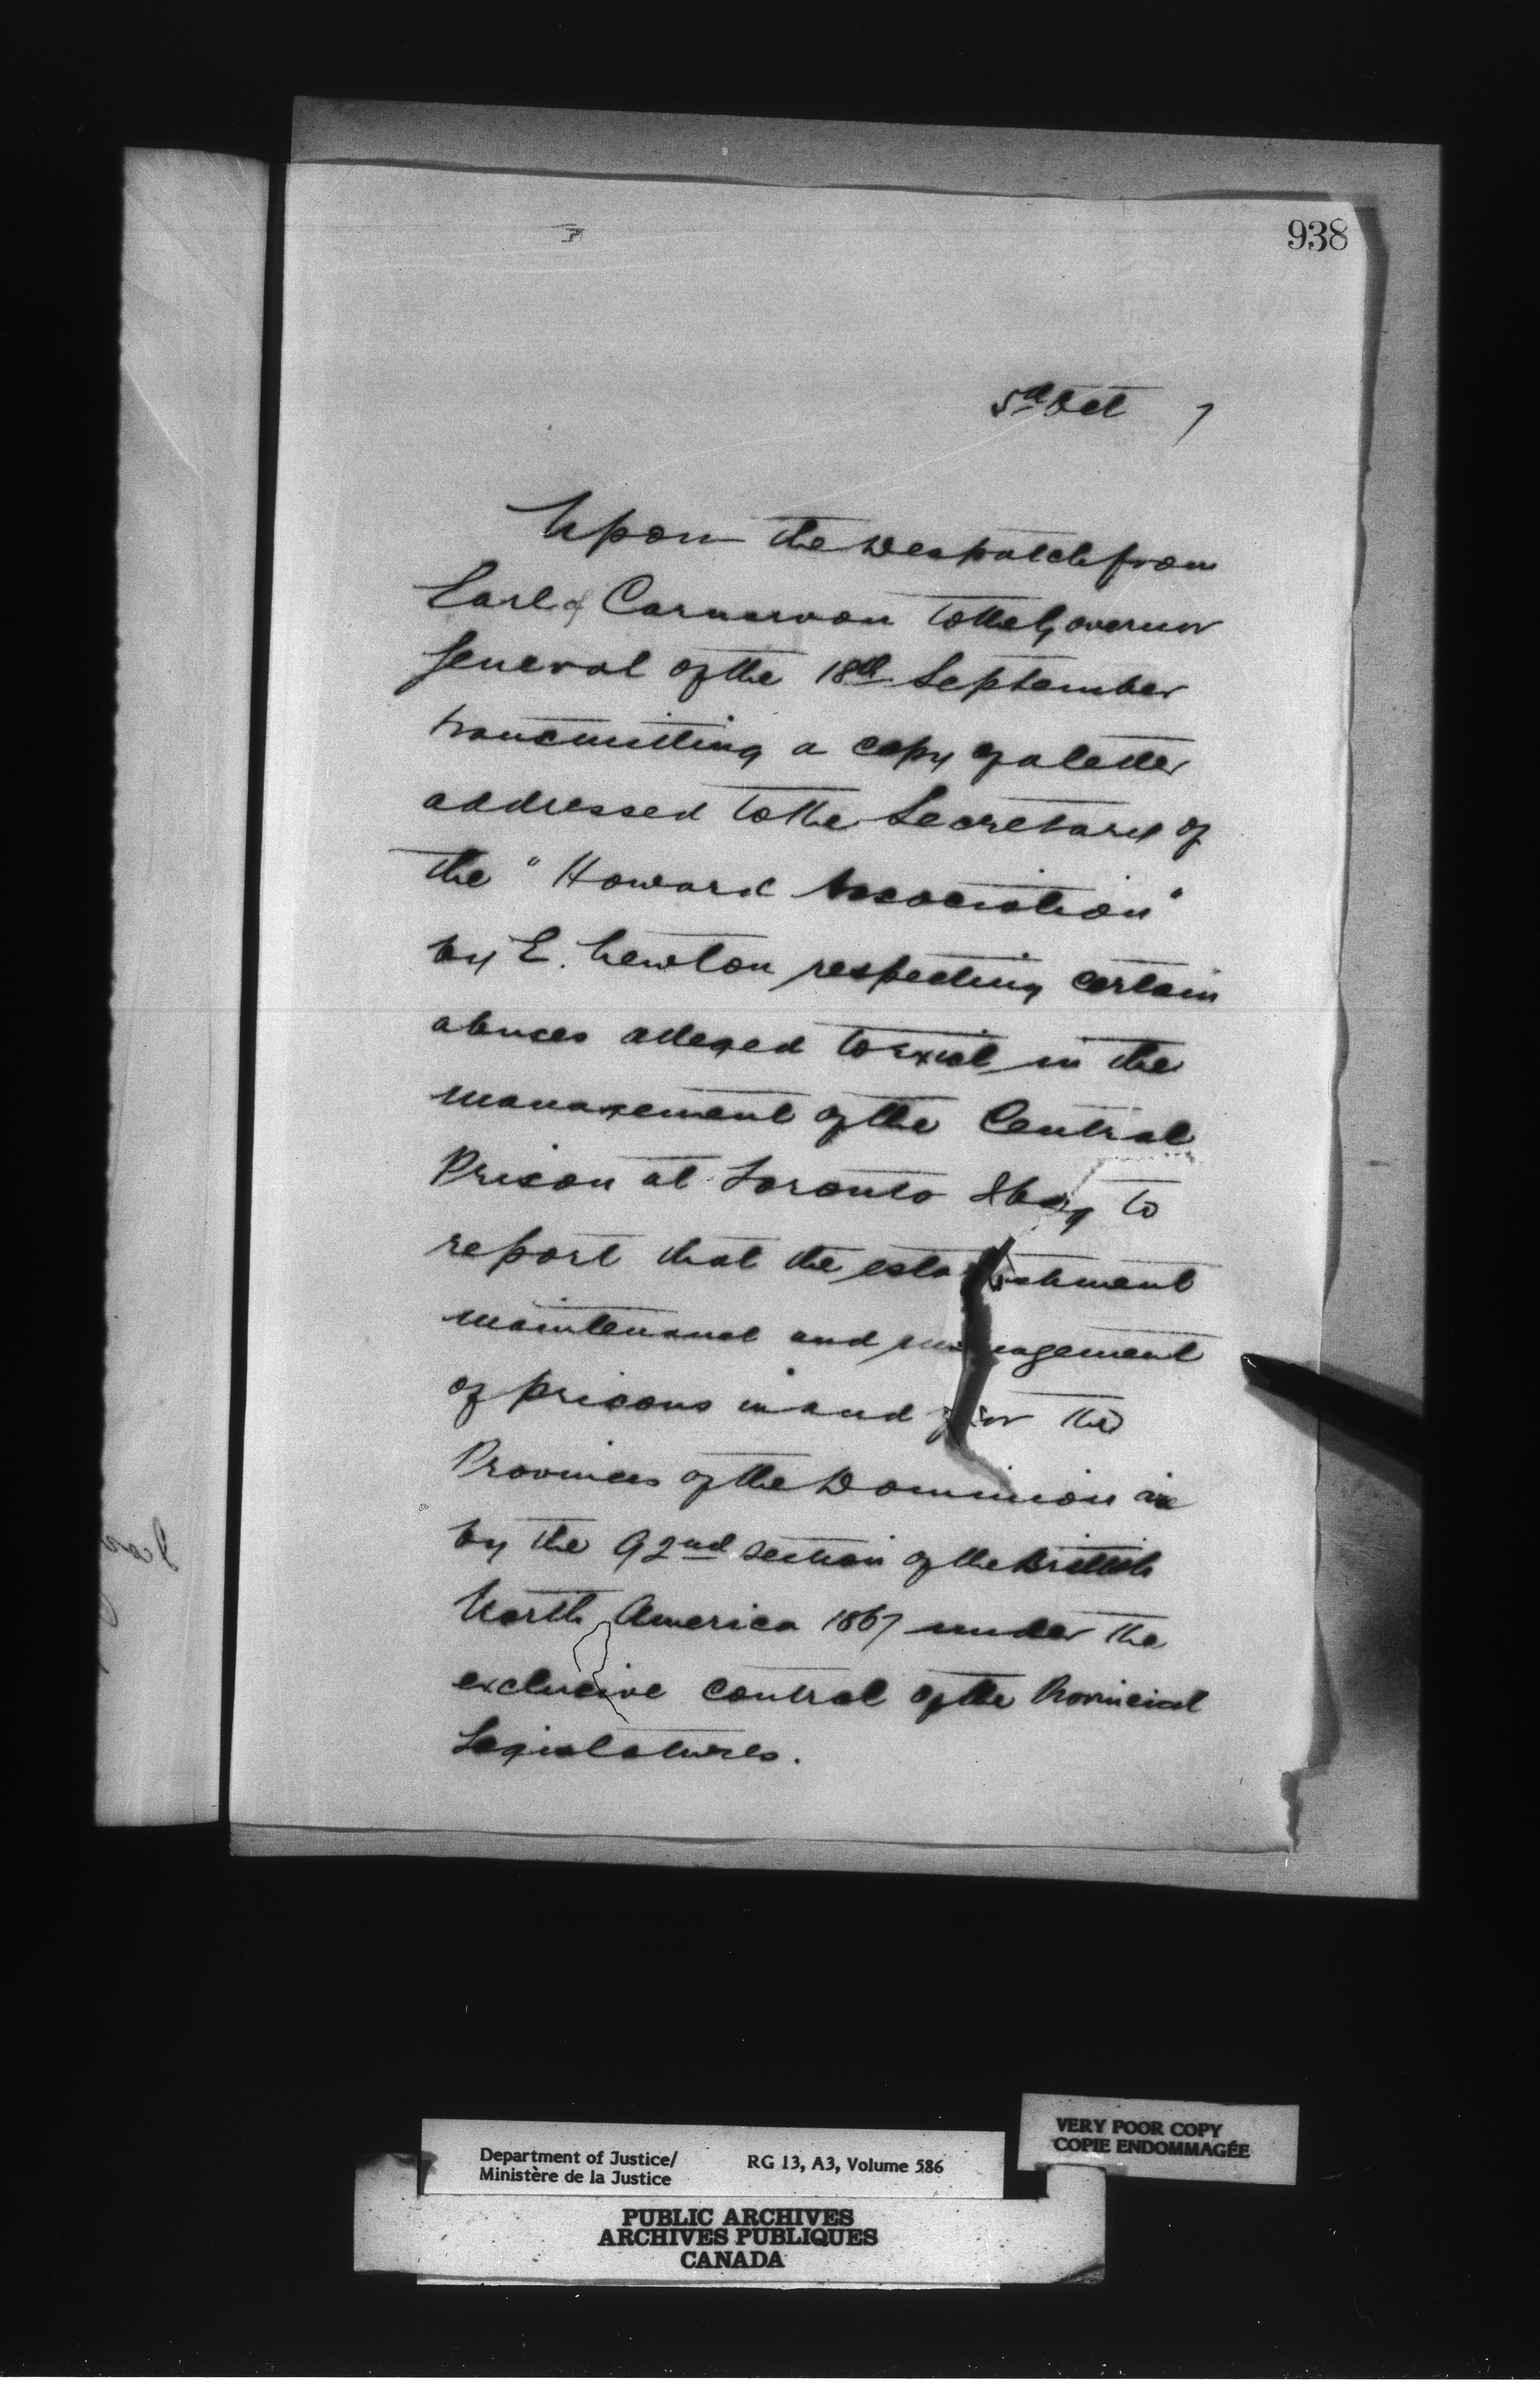 938
5th Oct 7
Upon the Despatch from
Earl of Carnarvon to the Governor
General of the 18th September
transmitting a copy of a letter
addressed to the Secretary of
the "Howard Association"
by E. Newton respecting certain
abuses alleged to exist in the
management of the Central
Prison at Toronto I beg to
report that the establishment
maintenance and management
of prisons in and for the
Provinces of the Dominion are
by the 92nd section of the British
North America 1867 under the
exclusive control of the Provincial
Legislatures.
Department of Justice/
Ministère de la Justice
RG 13, A3, Volume 586
VERY POOR COPY
COPIE ENDOMMAGÉE
PUBLIC ARCHIVES
ARCHIVES PUBLIQUES
CANADA